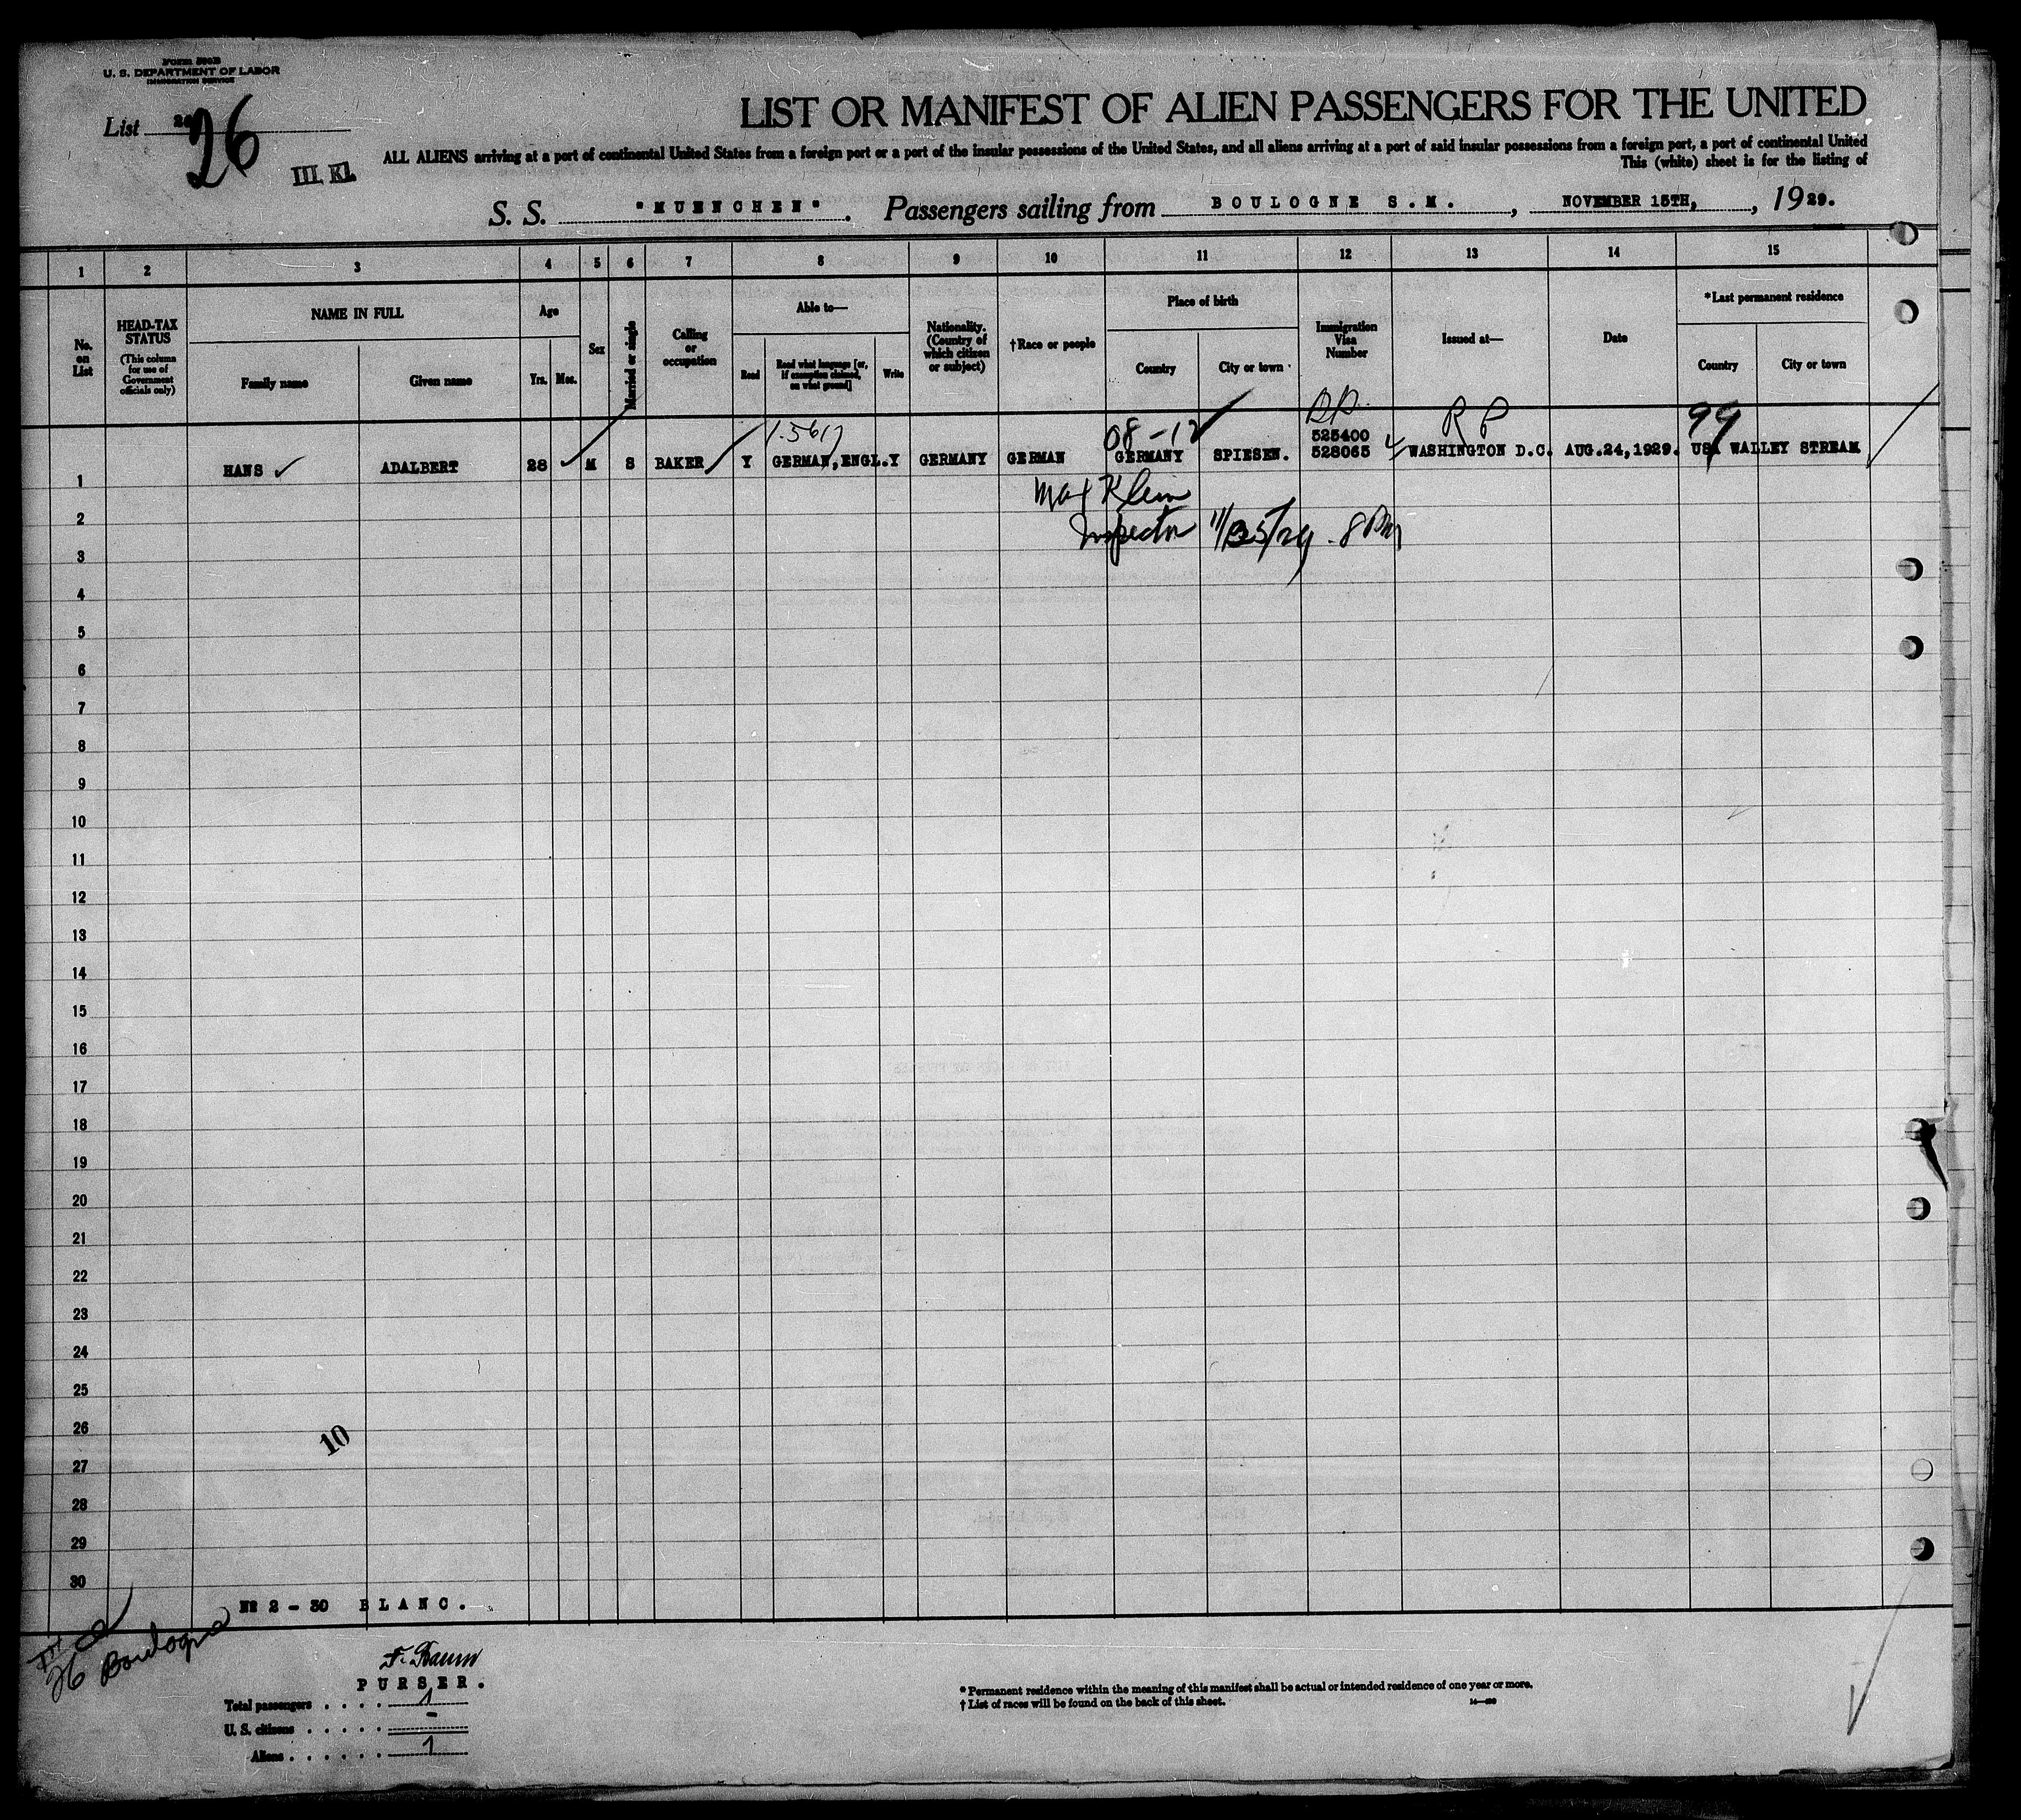 Form 500B
U. S. DEPARTMENT OF LABOR
IMMIGRATION SERVICE
List 26
III. Kl.
LIST OR MANIFEST OF ALIEN PASSENGERS FOR THE UNITED
ALL ALIENS arriving at a port of continental United States from a foreign port or a port of the insular possessions of the United States, and all aliens arriving at a port of said insular possessions from a foreign port, a port of continental United
This (white) sheet is for the listing of
S. S. "MUENCHEN". Passengers sailing from BOULOGNE S.M., NOVEMBER 15TH, , 1929.
1 2 3 4 5 6 7 8 9 10 11 12 13 14 15
No. on List
HEAD-TAX STATUS
(This column for use of Government officials only)
NAME IN FULL
Family name Given name
Age
Yrs. Mos.
Sex
Married or single
Calling or occupation
Able to—
Read Read what language [or, if exemption claimed, on what ground] Write
Nationality. (Country of which citizen or subject)
†Race or people
Place of birth
Country City or town
Immigration Visa Number
Issued at—
Date
*Last permanent residence
Country City or town
08-12 RP 99
525400
1 HANS ADALBERT 28 M S BAKER Y GERMAN, ENGL. Y GERMANY GERMAN GERMANY SPIESEN. 528065 WASHINGTON D.C. AUG.24,1929. USA WALLEY STREAM
Max Klein
2
Inspector 11/25/29. 8 PM
3
4
5
6
7
8
9
10
11
12
13
14
15
16
17
18
19
20
21
22
23
24
25
26
10
27
28
29
30
No 2 - 30 BLANC.
26 Boulogne
F. Baum
PURSER.
Total passengers . . . . 1
U. S. citizens . . . . . -
Aliens . . . . . . 1
* Permanent residence within the meaning of this manifest shall be actual or intended residence of one year or more.
† List of races will be found on the back of this sheet.